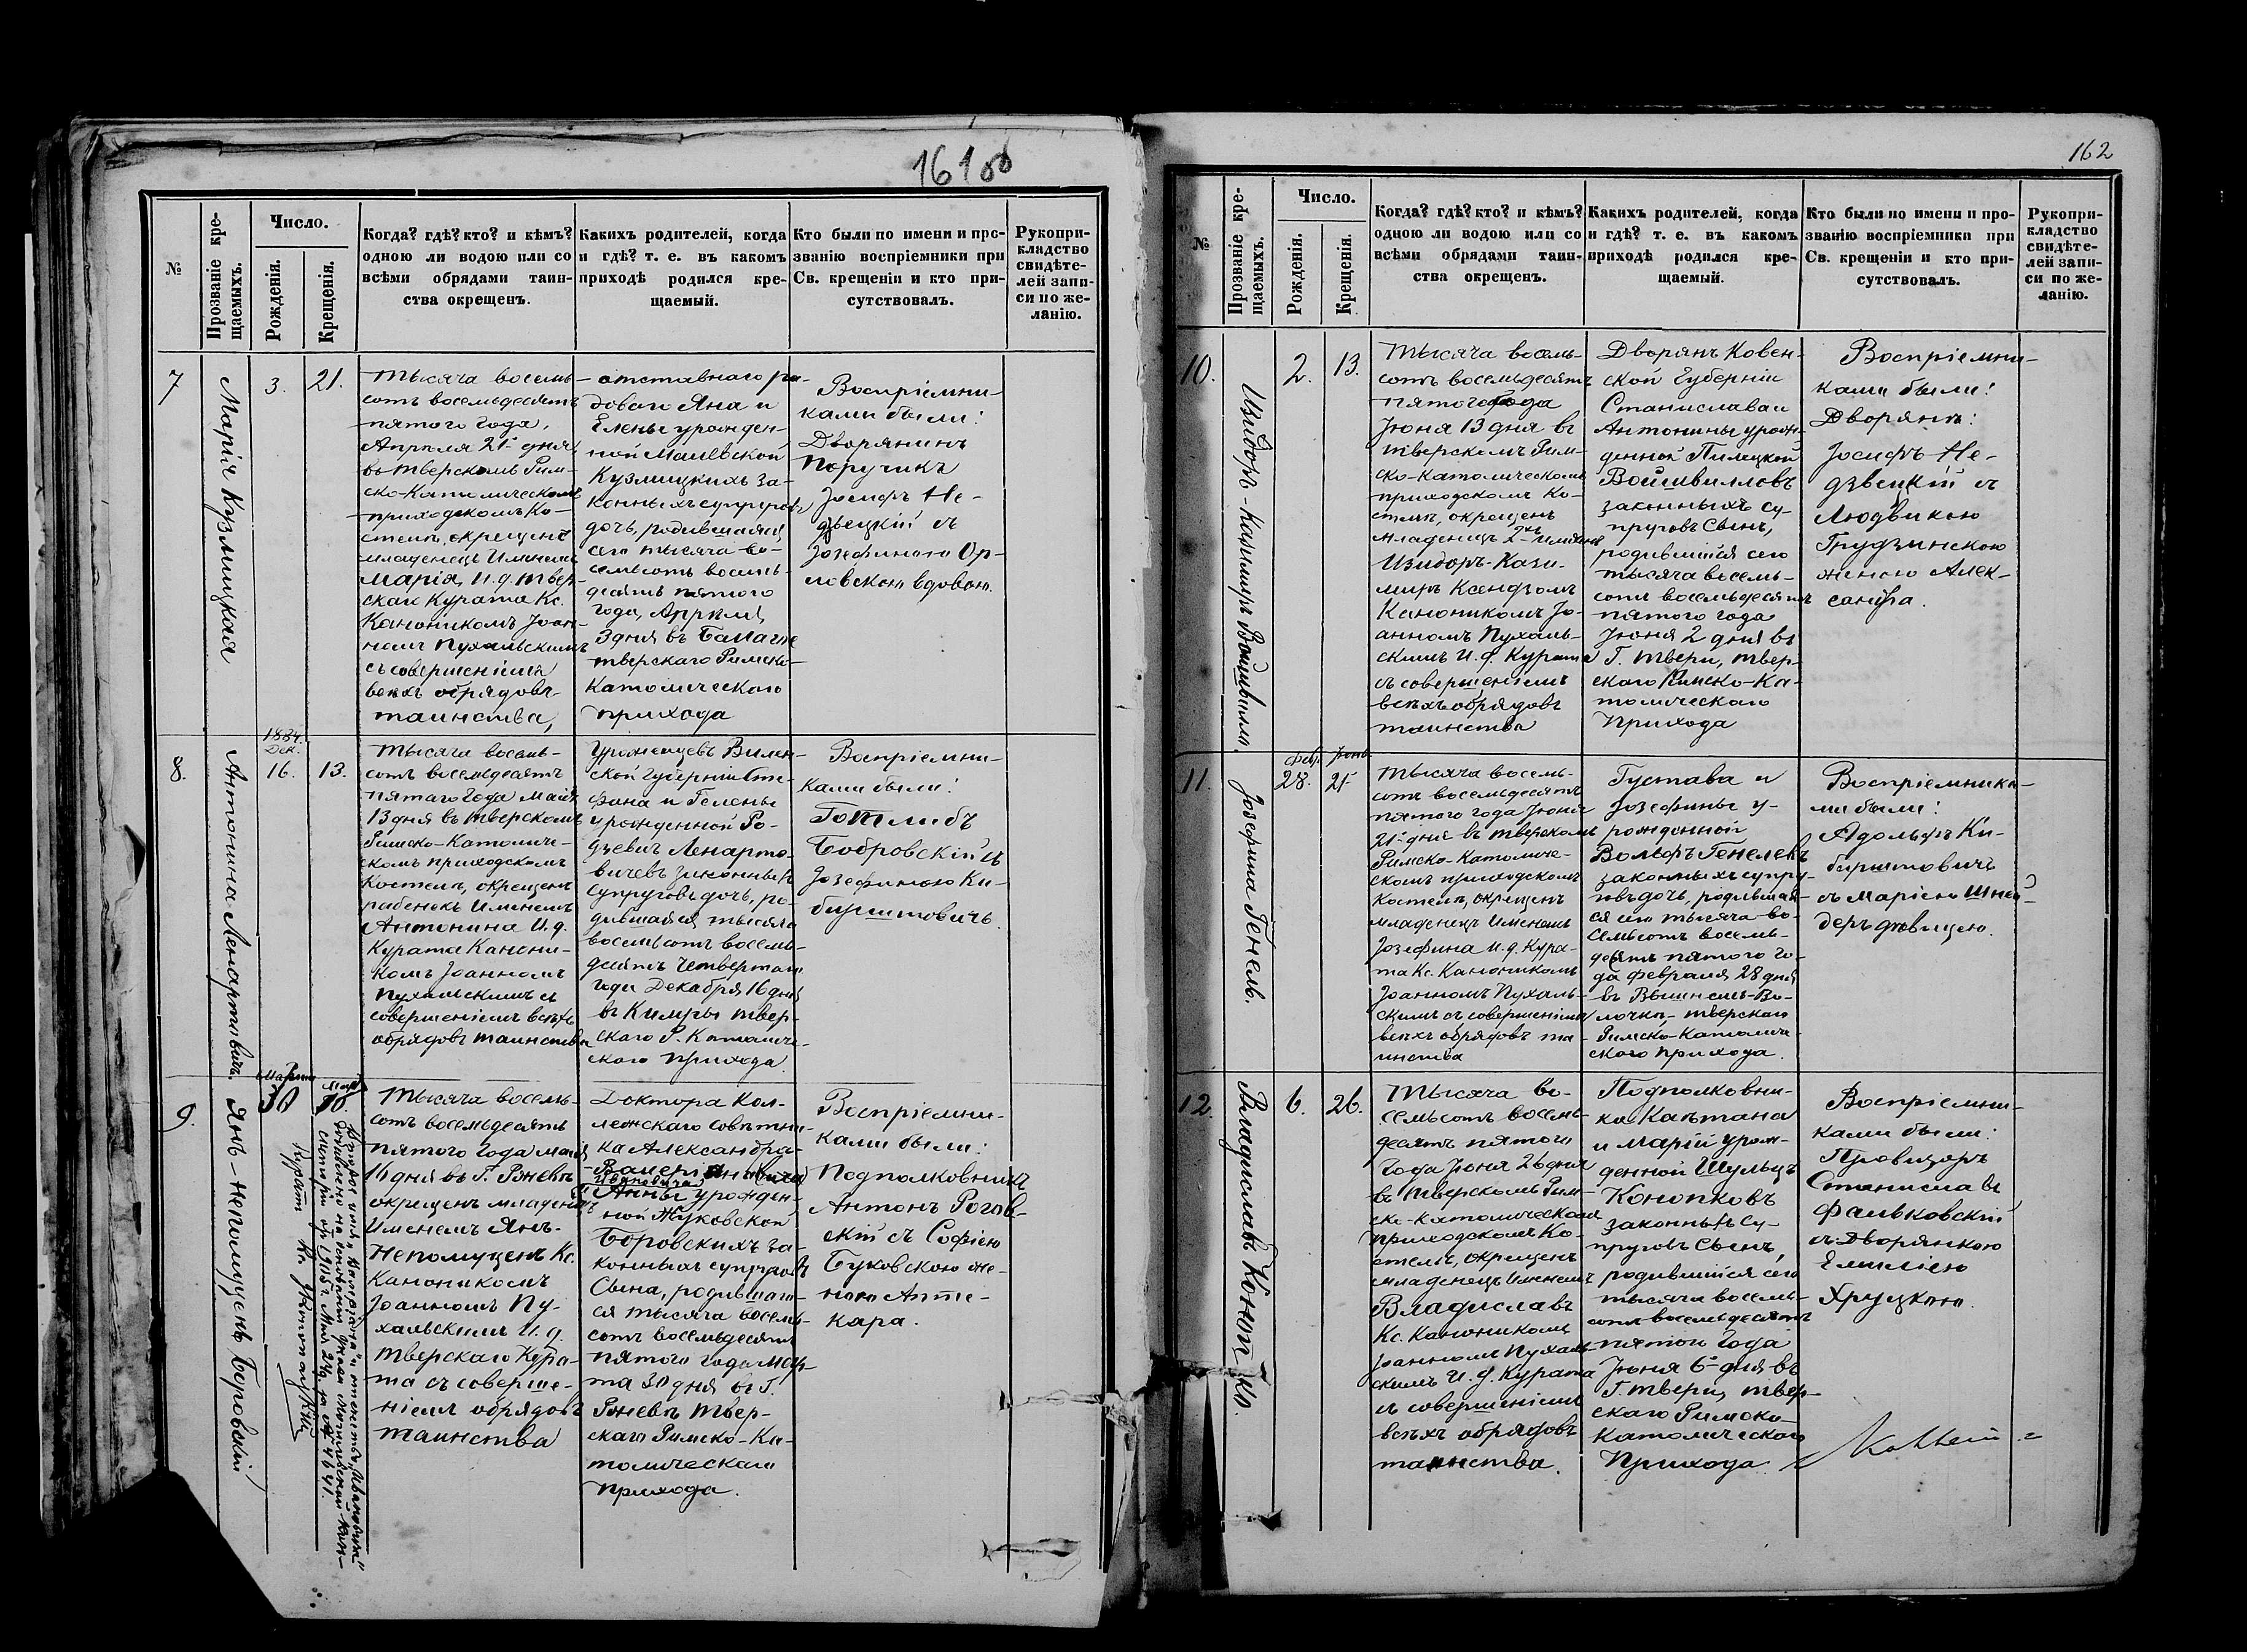 161об
№
Прозваніе кре-
щаемыхъ.
Число.
Рожденія.
Крещенія.
Когда? гдѣ? кто? и кѣмъ?
одною ли водою или со
всѣми обрядами таин-
ства окрещенъ.
Какихъ родителей, когда
и гдѣ? т. е. въ какомъ
приходѣ родился кре-
щаемый.
Кто были по имени и про-
званію воспріемники при
Св. крещеніи и кто при-
сутствовалъ.
Рукопри-
кладство
свидѣте-
лей запи-
си по же-
ланію.
7
Марія Кузмицкая
3.
21.
Тысяча восемь-
сотъ восемьдесятъ
пятого года,
Апрѣля 21 дня
въ Тверскомъ Рим-
ско-Католическомъ
приходскомъ Ко-
стелѣ, окрещенъ
младенецъ Именемъ
Марія, И. д. Твер-
скаго Курата Кс.
Каноникомъ Іоан-
номъ Пухальскимъ
съ совершеніемъ
всѣхъ обрядовъ
таинства,
отставнаго ря-
доваго Яна и
Елены урожден-
ной
Кузмицкихъ за-
конныхъ супруговъ
дочь, родившаяся
сего тысяча во-
семьсотъ восемь-
десятъ пятого
года, Апрѣля
3 дня въ
Тверскаго Римско-
Католического
прихода
Воспріемни-
ками были:
Дворянинъ
Поручикъ
Іосифъ Не-
дзвецкій съ
Іозефиною Ор-
ловскою вдовою.
8.
Антонина Ленартовичъ.
1884.
Дек.
16.
13.
Тысяча восемь-
сотъ восемьдесятъ
пятаго года Мая
13 дня въ Тверскомъ
Римско-Католиче-
скомъ приходскомъ
Костелѣ, окрещенъ
рабенокъ Именемъ
Антонина И. д.
Курата Канони-
комъ Іоанномъ
Пухальскимъ съ
совершеніемъ всѣхъ
обрядовъ таинства
Уроженцевъ Вилен-
ской Губерніи Сте-
фана и Гелены
урожденной Ро-
дзевичъ Ленарто-
вичевъ законныхъ
супруговъ дочь, ро-
дившаяся тысяча
восемьсотъ восемь-
десятъ четвертаго
года Декабря 16 дня
въ Кимры Твер-
ского Р. Католиче-
ского прихода
Воспріемни-
ками были:
Готлибъ
Бобровскій съ
Іозефиною Ки-
бортовичъ.
9.
Янъ-Непомуценъ Боровскій
Марта
30
Мая
16.
Тысяча восемь-
сотъ восемьдесятъ
пятаго года Мая
16 дня въ Г. Ржевѣ
окрещенъ младенецъ
Именемъ Янъ-
Непомуценъ Кс.
Каноникомъ
Іоанномъ Пу-
хальскимъ И. д.
Тверскаго Кура-
та съ соверше-
ніемъ обрядовъ
таинства
Доктора Кол-
лежскаго совѣтни-
ка Александра-
Ивановича
Анны урожден-
ной Жуковской
Боровскихъ за-
конныхъ супруговъ
Сына, родившаго-
ся тысяча восемь-
сотъ восемьдесятъ
пятого года Мар-
та 30 дня въ Г.
Ржевѣ Твер-
скаго Римско-Ка-
толическаго
прихода.
Воспріемни-
ками были:
Подполковникъ
Антонъ Рогов-
скій съ Софіею
Буковскою же-
ною Апте-
каря.
162
№
Прозваніе кре-
щаемыхъ.
Число.
Рожденія.
Крещенія.
Когда? гдѣ? кто? и кѣмъ?
одною ли водою или со
всѣми обрядами таин-
ства окрещенъ.
Какихъ родителей, когда
и гдѣ? т. е. въ какомъ
приходѣ родился кре-
щаемый.
Кто были по имени и про-
званію воспріемники при
Св. крещеніи и кто при-
сутствовалъ.
Рукопри-
кладство
свидѣте-
лей запи-
си по же-
ланію.
10.
Изидоръ-Казимиръ Войшвилло.
2.
13.
Тысяча восемь-
сотъ восемьдесятъ
пятого года
Іюня 13 дня въ
Тверскомъ Рим-
ско-Католическомъ
приходскомъ Ко-
стелѣ, окрещенъ
младенецъ 2хъ Именъ
Изидоръ-Кази-
миръ Ксендзомъ
Каноникомъ Іо-
анномъ Пухаль-
скимъ И. д. Курата
съ совершеніемъ
всѣхъ обрядовъ
таинства
Дворянъ Ковен-
ской Губерніи
Станислава и
Антонины урож-
денной Пилецкой
Войшвилловъ
законныхъ су-
пруговъ Сынъ,
родившійся сего
тысяча восемь-
сотъ восемьдесятъ
пятого года
Іюня 2 дня въ
Г. Твери, Твер-
ского Римско-Ка-
толическаго
Прихода
Воспріемни-
ками были:
Дворяне:
Іосифъ Не-
дзвецкій съ
Людвикою
Грудзинскою
женою Алек-
сандра.
11.
Іозефина Генель.
Февр.
28.
Іюнь
21
Тысяча восемь-
сотъ восемьдесятъ
пятого года Іюня
21 дня въ Тверскомъ
Римско-Католиче-
скомъ приходскомъ
Костелѣ, окрещенъ
младенецъ Именемъ
Іозефина И. д. Кура-
та Кс. Каноникомъ
Іоанномъ Пухаль-
скимъ съ совершеніемъ
всѣхъ обрядовъ та-
инства
Густава и
Іозефины у-
рожденной
Вольфъ Генелевъ
законныхъ супру-
говъ дочь, родившая-
ся сего тысяча во-
семьсотъ восемь-
десятъ пятого го-
да Февраля 28 дня
въ Вышнемъ-Во-
лочкѣ Тверскаго
Римско-Католиче-
ского прихода.
Воспріемника-
ми были:
Адольфъ Ки-
бортовичъ
съ Маріею Шней-
деръ дѣвицею.
12.
Владиславъ Конопко.
6.
26.
Тысяча во-
семьсотъ восемь-
десятъ пятого
Года Іюня 26 дня
въ Тверскомъ Рим-
ско-Католическомъ
приходскомъ Ко-
стелѣ, окрещенъ
младенецъ Именемъ
Владиславъ
Кс. Каноникомъ
Іоанномъ Пухаль-
скимъ И. д. Курата
съ совершеніемъ
всѣхъ обрядовъ
таинства.
Подполковни-
ка Каетана
и Маріи урож-
денной Шульцъ
Конопковъ
законныхъ су-
пруговъ Сынъ,
родившійся сего
тысяча восемь-
сотъ восемьдесятъ
пятого Года
Іюня 6 дня въ
Г. Твери, Твер-
скаго Римско-
Католического
Прихода
Воспріемни-
ками были:
Провизоръ
Станиславъ
Фальковскій
съ Дворянкою
Емиліею
Хруцкою.